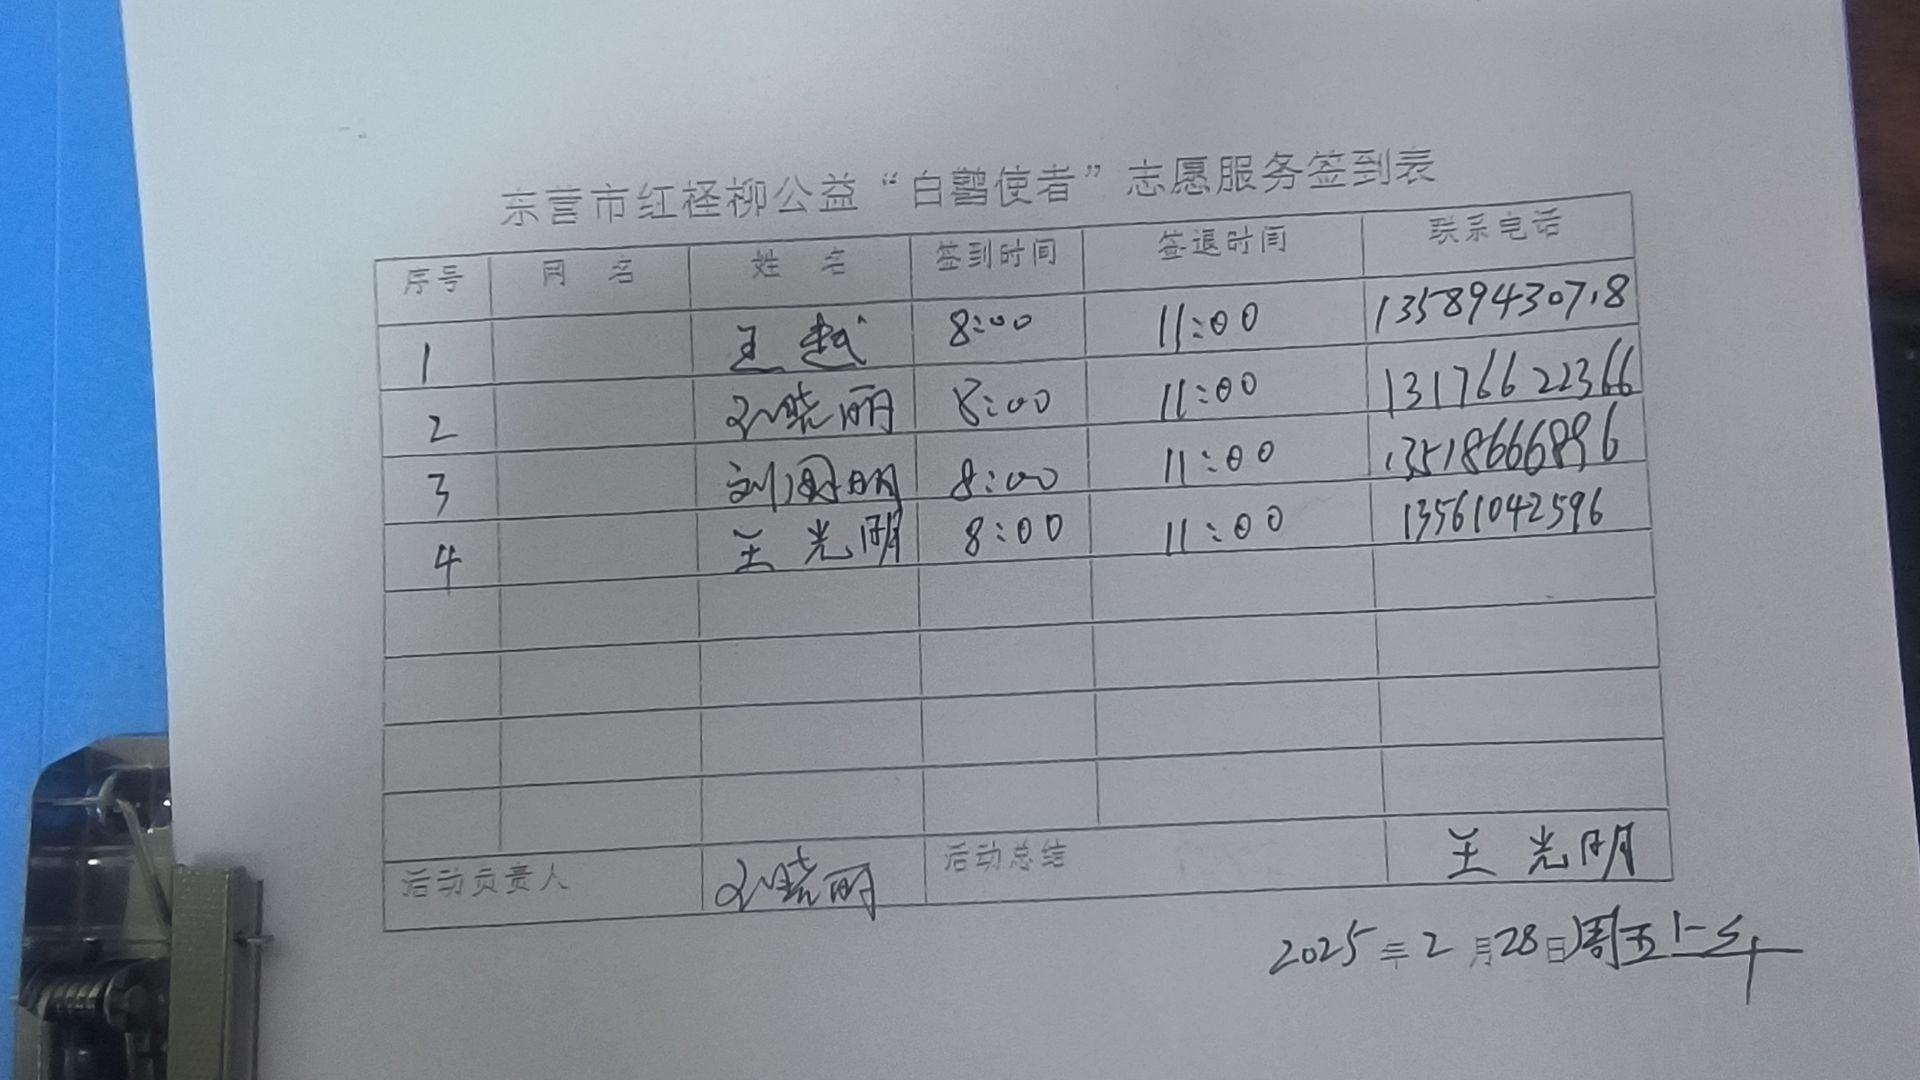 东营市红柽柳公益“白鹳使者”志愿服务签到表
序号 网 名 姓 名 签到时间 签退时间 联系电话
1 王越 8:00 11:00 13589430718
2 刘晓丽 8:00 11:00 13176622366
3 刘国明 8:00 11:00 13518666896
4 王光明 8:00 11:00 13561042596
活动负责人 刘晓丽 活动总结 王光明
2025年2月28日周五上午